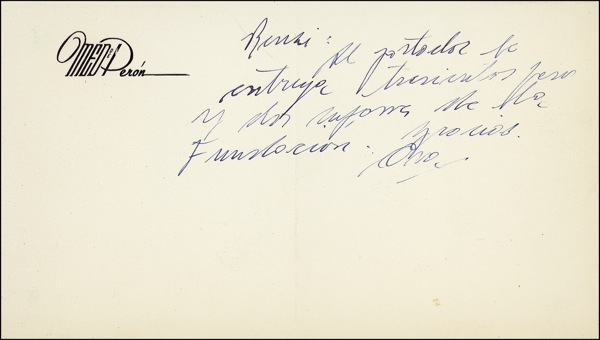 Perón
Renzi: Al portador le
entrega trescientos pesos
y dos informes de la
Fundación. Gracias.
Eva